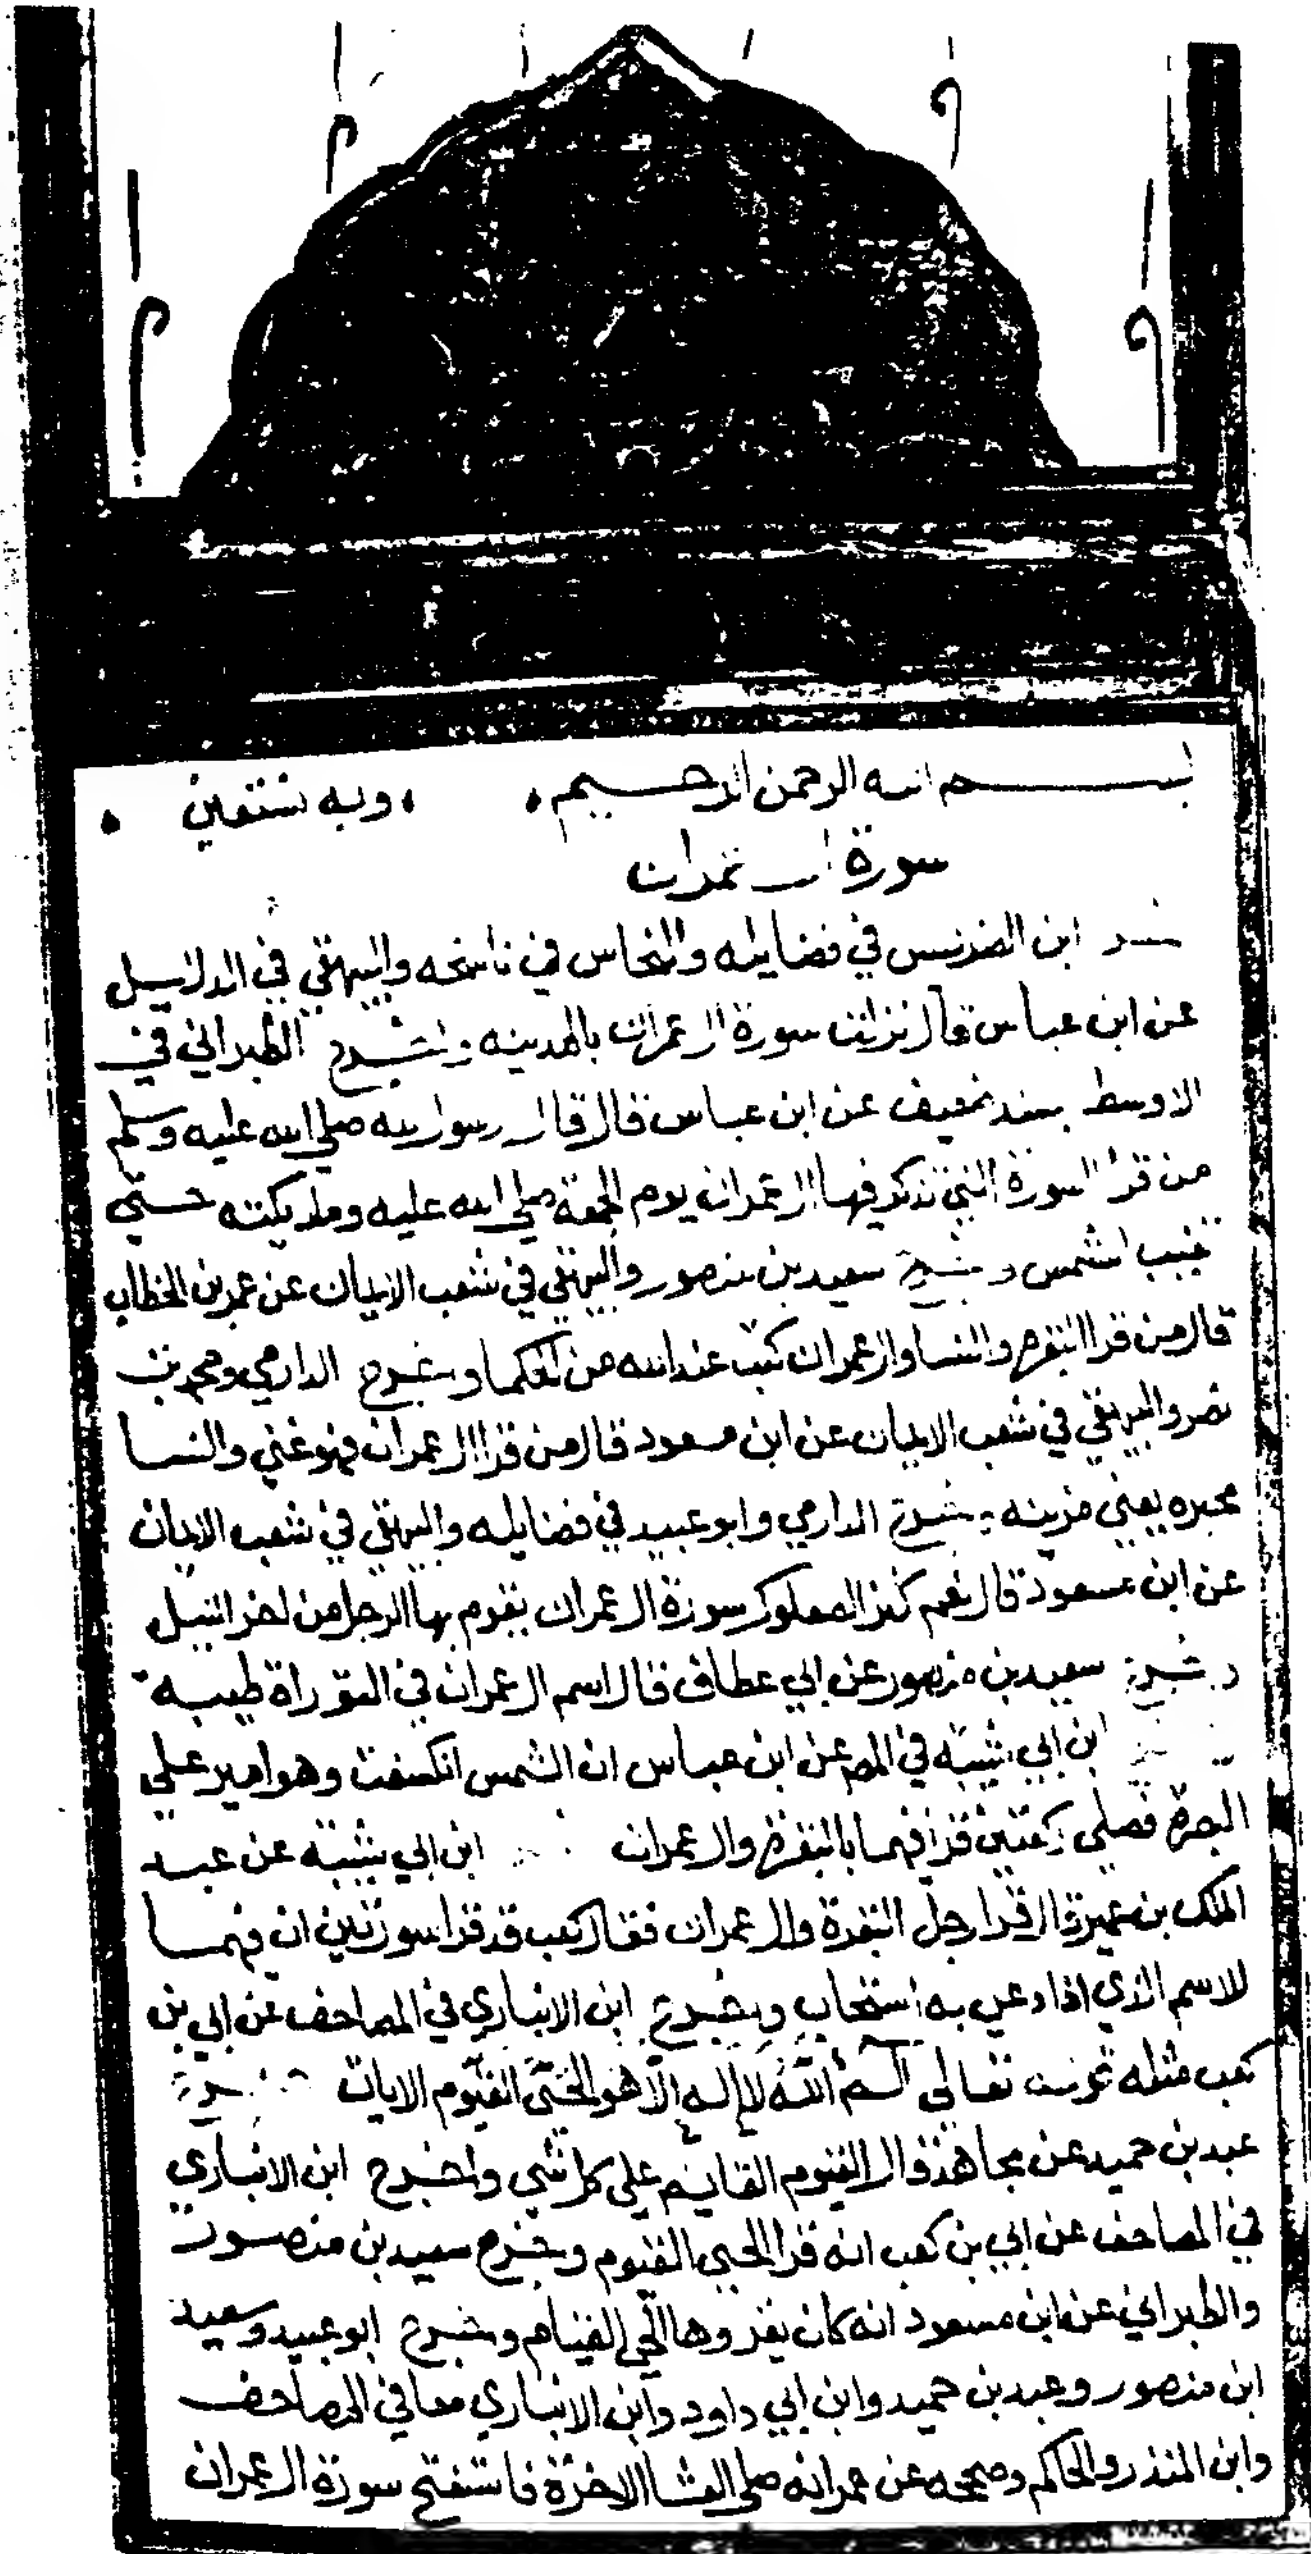 بسم الله الرحمن الرحيم وبه نستعين
سورة ال عمران
ابن الضريس في فضايله والنحاس في ناسخه والبيهقي في الدلايل
عن ابن عباس قال نزلت سورة ال عمران بالمدينه واخرج الطبراني في
الاوسط بسند ضعيف عن ابن عباس قال قال رسول الله صلي الله عليه وسلم
من قرا السورة التي نذكر فيها ال عمران يوم الجمعة صلي الله عليه وملايكته حتي
تغيب الشمس واخرج سعيد بن منصور والبيهقي في شعب الايمان عن عمر بن الخطاب
قال من قرا البقرة والنسا وال عمران كتب عند الله من الحكما واخرج الدارمي ومحمد بن
نصر والبيهقي في شعب الايمان عن ابن مسعود قال من قرا ال عمران فهو غني والنسا
محبره يعني مزينه واخرج الدارمي وابو عبيد في فضايله والبيهقي في شعب الايمان
عن ابن مسعود قال نعم كنز الصعلوك سورة ال عمران يقوم بها الرجل من اخر الليل
واخرج سعيد بن منصور عن ابي عطاف قال اسم ال عمران في التوراة طيبه
ابن ابي شيبه في المص عن ابن عباس ان الشمس انكسفت وهو امير علي
البصرة فصلي ركعتين قرا فيهما بالبقرة وال عمران ابن ابي شيبه عن عبد
الملك بن عمير قال قرا رجل البقرة وال عمران فقال كعب قد قرا سورتين ان فيهما
للاسم الذي اذا دعي به استجاب واخرج ابن الانباري في المصاحف عن ابي بن
كعب مثله قوله تعالي الٓمٓ اللَّهُ لا إله الا هو الحيّ القيّوم الايات اخرج
عبد بن حميد عن مجاهد قال القيوم القايم علي كل شي واخرج ابن الانباري
في المصاحف عن ابي بن كعب انه قرا الحي القيوم واخرج سعيد بن منصور
والطبراني عن ابن مسعود انه كان يقروها الحي القيام واخرج ابو عبيد وسعيد
ابن منصور وعبد بن حميد وابن ابي داود وابن الانباري معا في المصاحف
وابن المنذر والحاكم وصححه عن عمر انه صلي العشا الاخرة فاستفتح سورة ال عمران